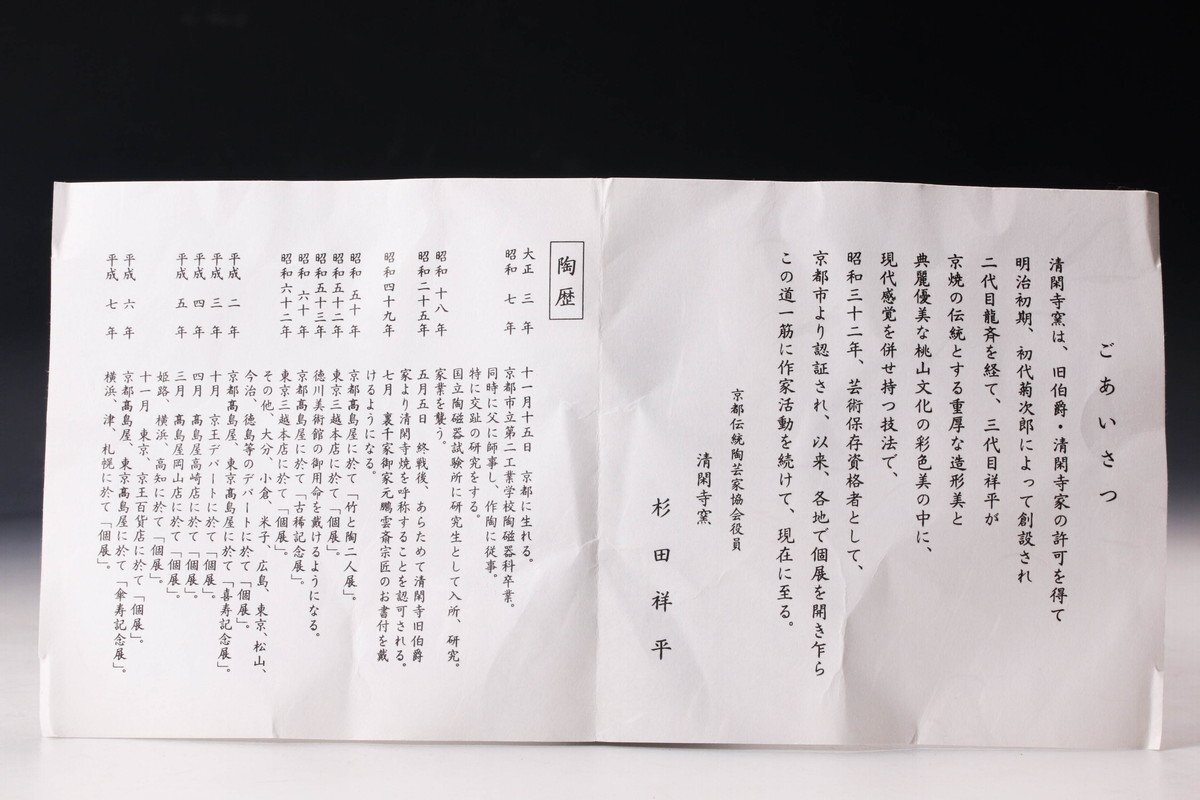 ごあいさつ
清閑寺窯は、旧伯爵・清閑寺家の許可を得て
明治初期、初代菊次郎によって創設され
二代目龍斉を経て、三代目祥平が
京焼の伝統とする重厚な造形美と
典麗優美な桃山文化の彩色美の中に、
現代感覚を併せ持つ技法で、
昭和三十二年、芸術保存資格者として、
京都市より認証され、以来、各地で個展を開き乍ら
この道一筋に作家活動を続けて、現在に至る。
京都伝統陶芸家協会役員
清閑寺窯
杉田祥平
陶歴
大正 三 年 十一月十五日 京都に生れる。
昭和 七 年 京都市立第二工業学校陶磁器科卒業。
同時に父に師事し、作陶に従事。
特に交趾の研究をする。
国立陶磁器試験所に研究生として入所、研究。
昭和 十八 年 家業を襲う。
昭和二十五年 五月五日 終戦後、あらためて清閑寺旧伯爵
家より清閑寺焼を呼称することを認可される。
昭和四十九年 七月 裏千家御家元鵬雲斎宗匠のお書付を戴
けるようになる。
昭和 五十 年 京都髙島屋に於て「竹と陶二人展」。
昭和五十二年 東京三越本店に於て「個展」。
昭和五十三年 徳川美術館の御用命を戴けるようになる。
昭和 六十 年 京都髙島屋に於て「古稀記念展」。
昭和六十二年 東京三越本店に於て「個展」。
その他、大分、小倉、米子、広島、東京、松山、
今治、徳島等のデパートに於て「個展」。
平成 二 年 京都髙島屋、東京髙島屋に於て「喜寿記念展」。
平成 三 年 十月 京王デパートに於て「個展」。
平成 四 年 四月 髙島屋高崎店に於て「個展」。
平成 五 年 三月 髙島屋岡山店に於て「個展」。
姫路、横浜、高知に於て「個展」。
十一月 東京、京王百貨店に於て「個展」。
平成 六 年 京都髙島屋、東京髙島屋に於て「傘寿記念展」。
平成 七 年 横浜、津、札幌に於て「個展」。